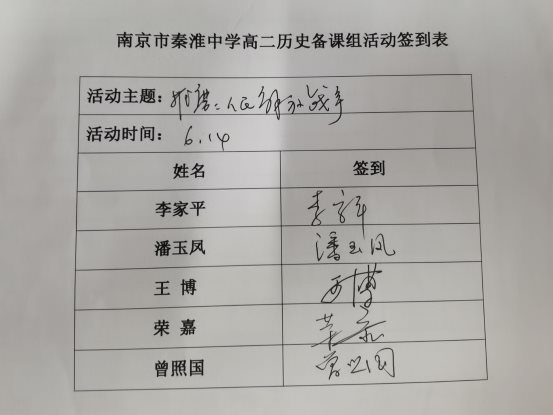 南京市秦淮中学高二历史备课组活动签到表
活动主题：推磨：人民解放战争
活动时间： 6.14
姓名 签到
李家平 李家平
潘玉凤 潘玉凤
王 博 王博
荣 嘉 荣嘉
曾照国 曾照国